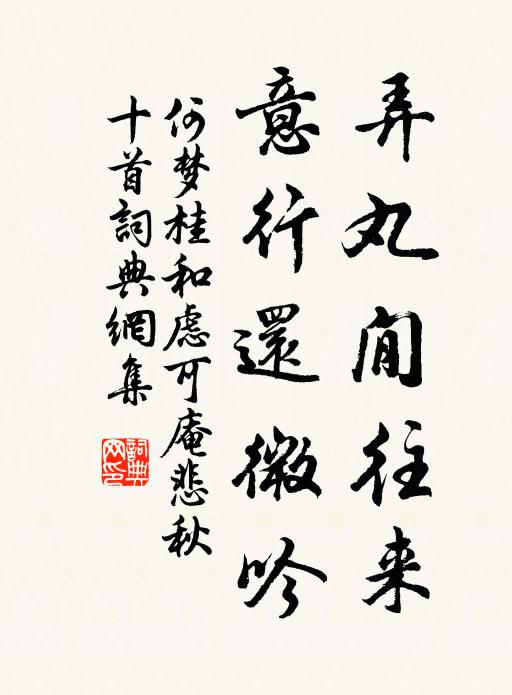 弄丸閒往来
意行還微吟
何梦桂和慮可庵悲秋
十首詞典網集
詞典网印